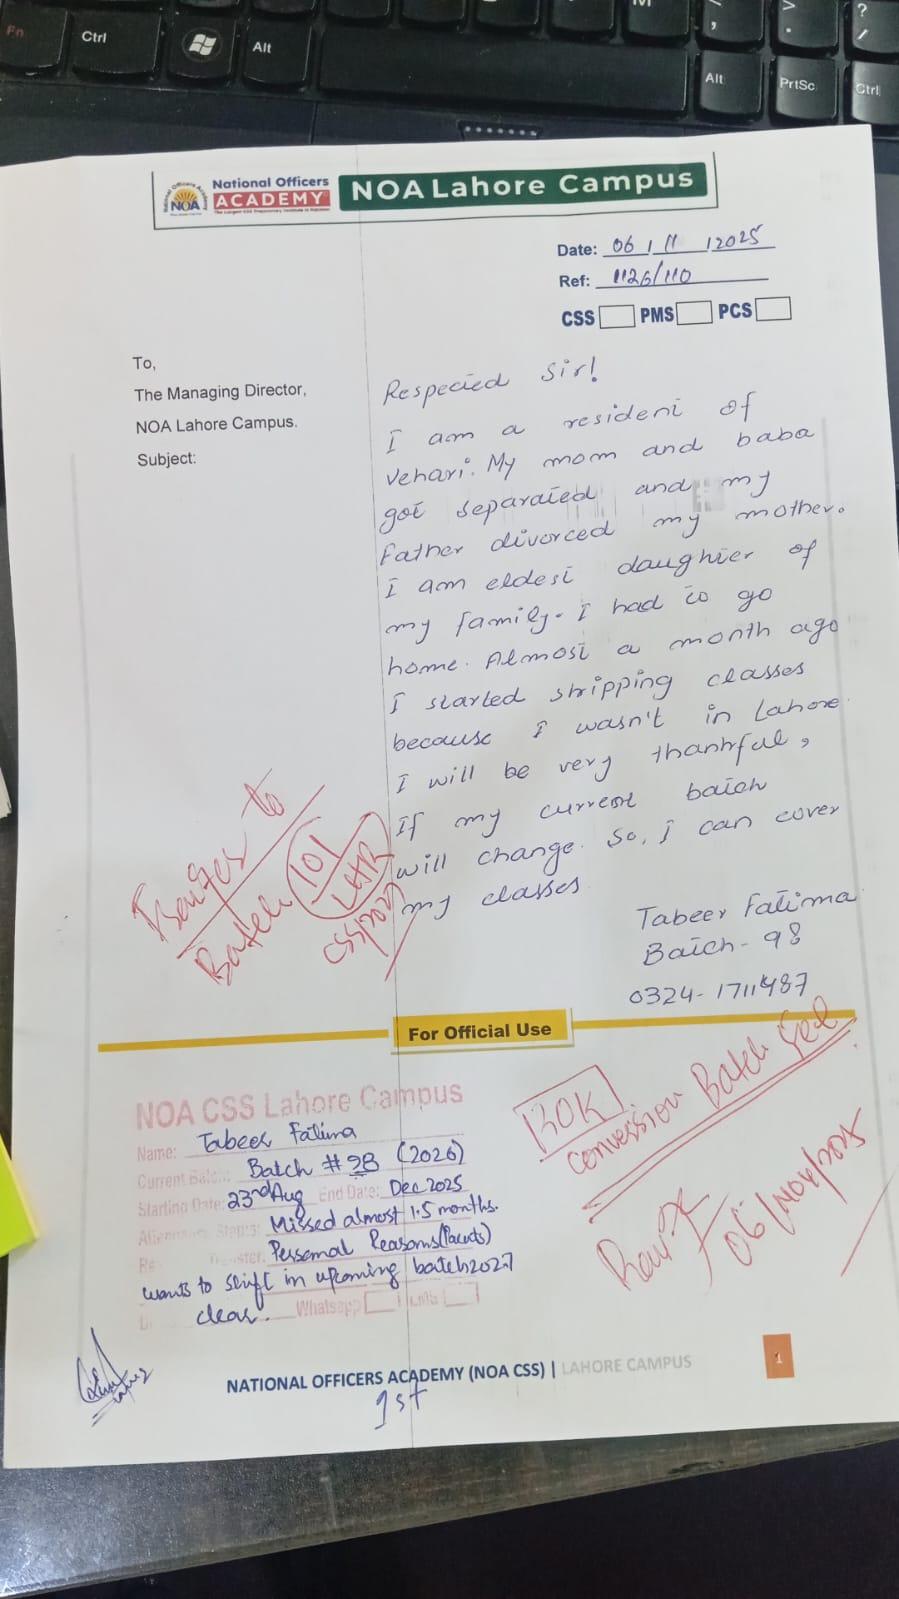 Fn
Ctrl
Alt
Alt
PrtSc
Ctrl
National Officers
ACADEMY
NOA
NOA Lahore Campus
Date: 06/11/2025
Ref: 1126/110
CSS PMS PCS
To,
The Managing Director,
NOA Lahore Campus.
Subject:
Respected Sir!
I am a resident of
Vehari. My mom and baba
got separated and my
Father divorced my mother.
I am eldest daughter of
my family. I had to go
home. Almost a month ago
I started skipping classes
because I wasn't in Lahore.
I will be very thankful,
If my current batch
will change. So, I can cover
my classes
Tabeer Fatima
Batch - 98
0324-1711487
to
Batch 101
LHR
CSS/2027
For Official Use
NOA CSS Lahore Campus
Name: Tabeer Fatima
Current Batch: Batch # 98 (2026)
Starting Date: 23rd Aug End Date: Dec 2025
Missed almost 1.5 months.
Personal Reasons (Parents)
wants to shift in upcoming batch 2027
clear. Whatsapp LMS
30K
Batch
06/Nov/2025
NATIONAL OFFICERS ACADEMY (NOA CSS) | LAHORE CAMPUS
1
1st